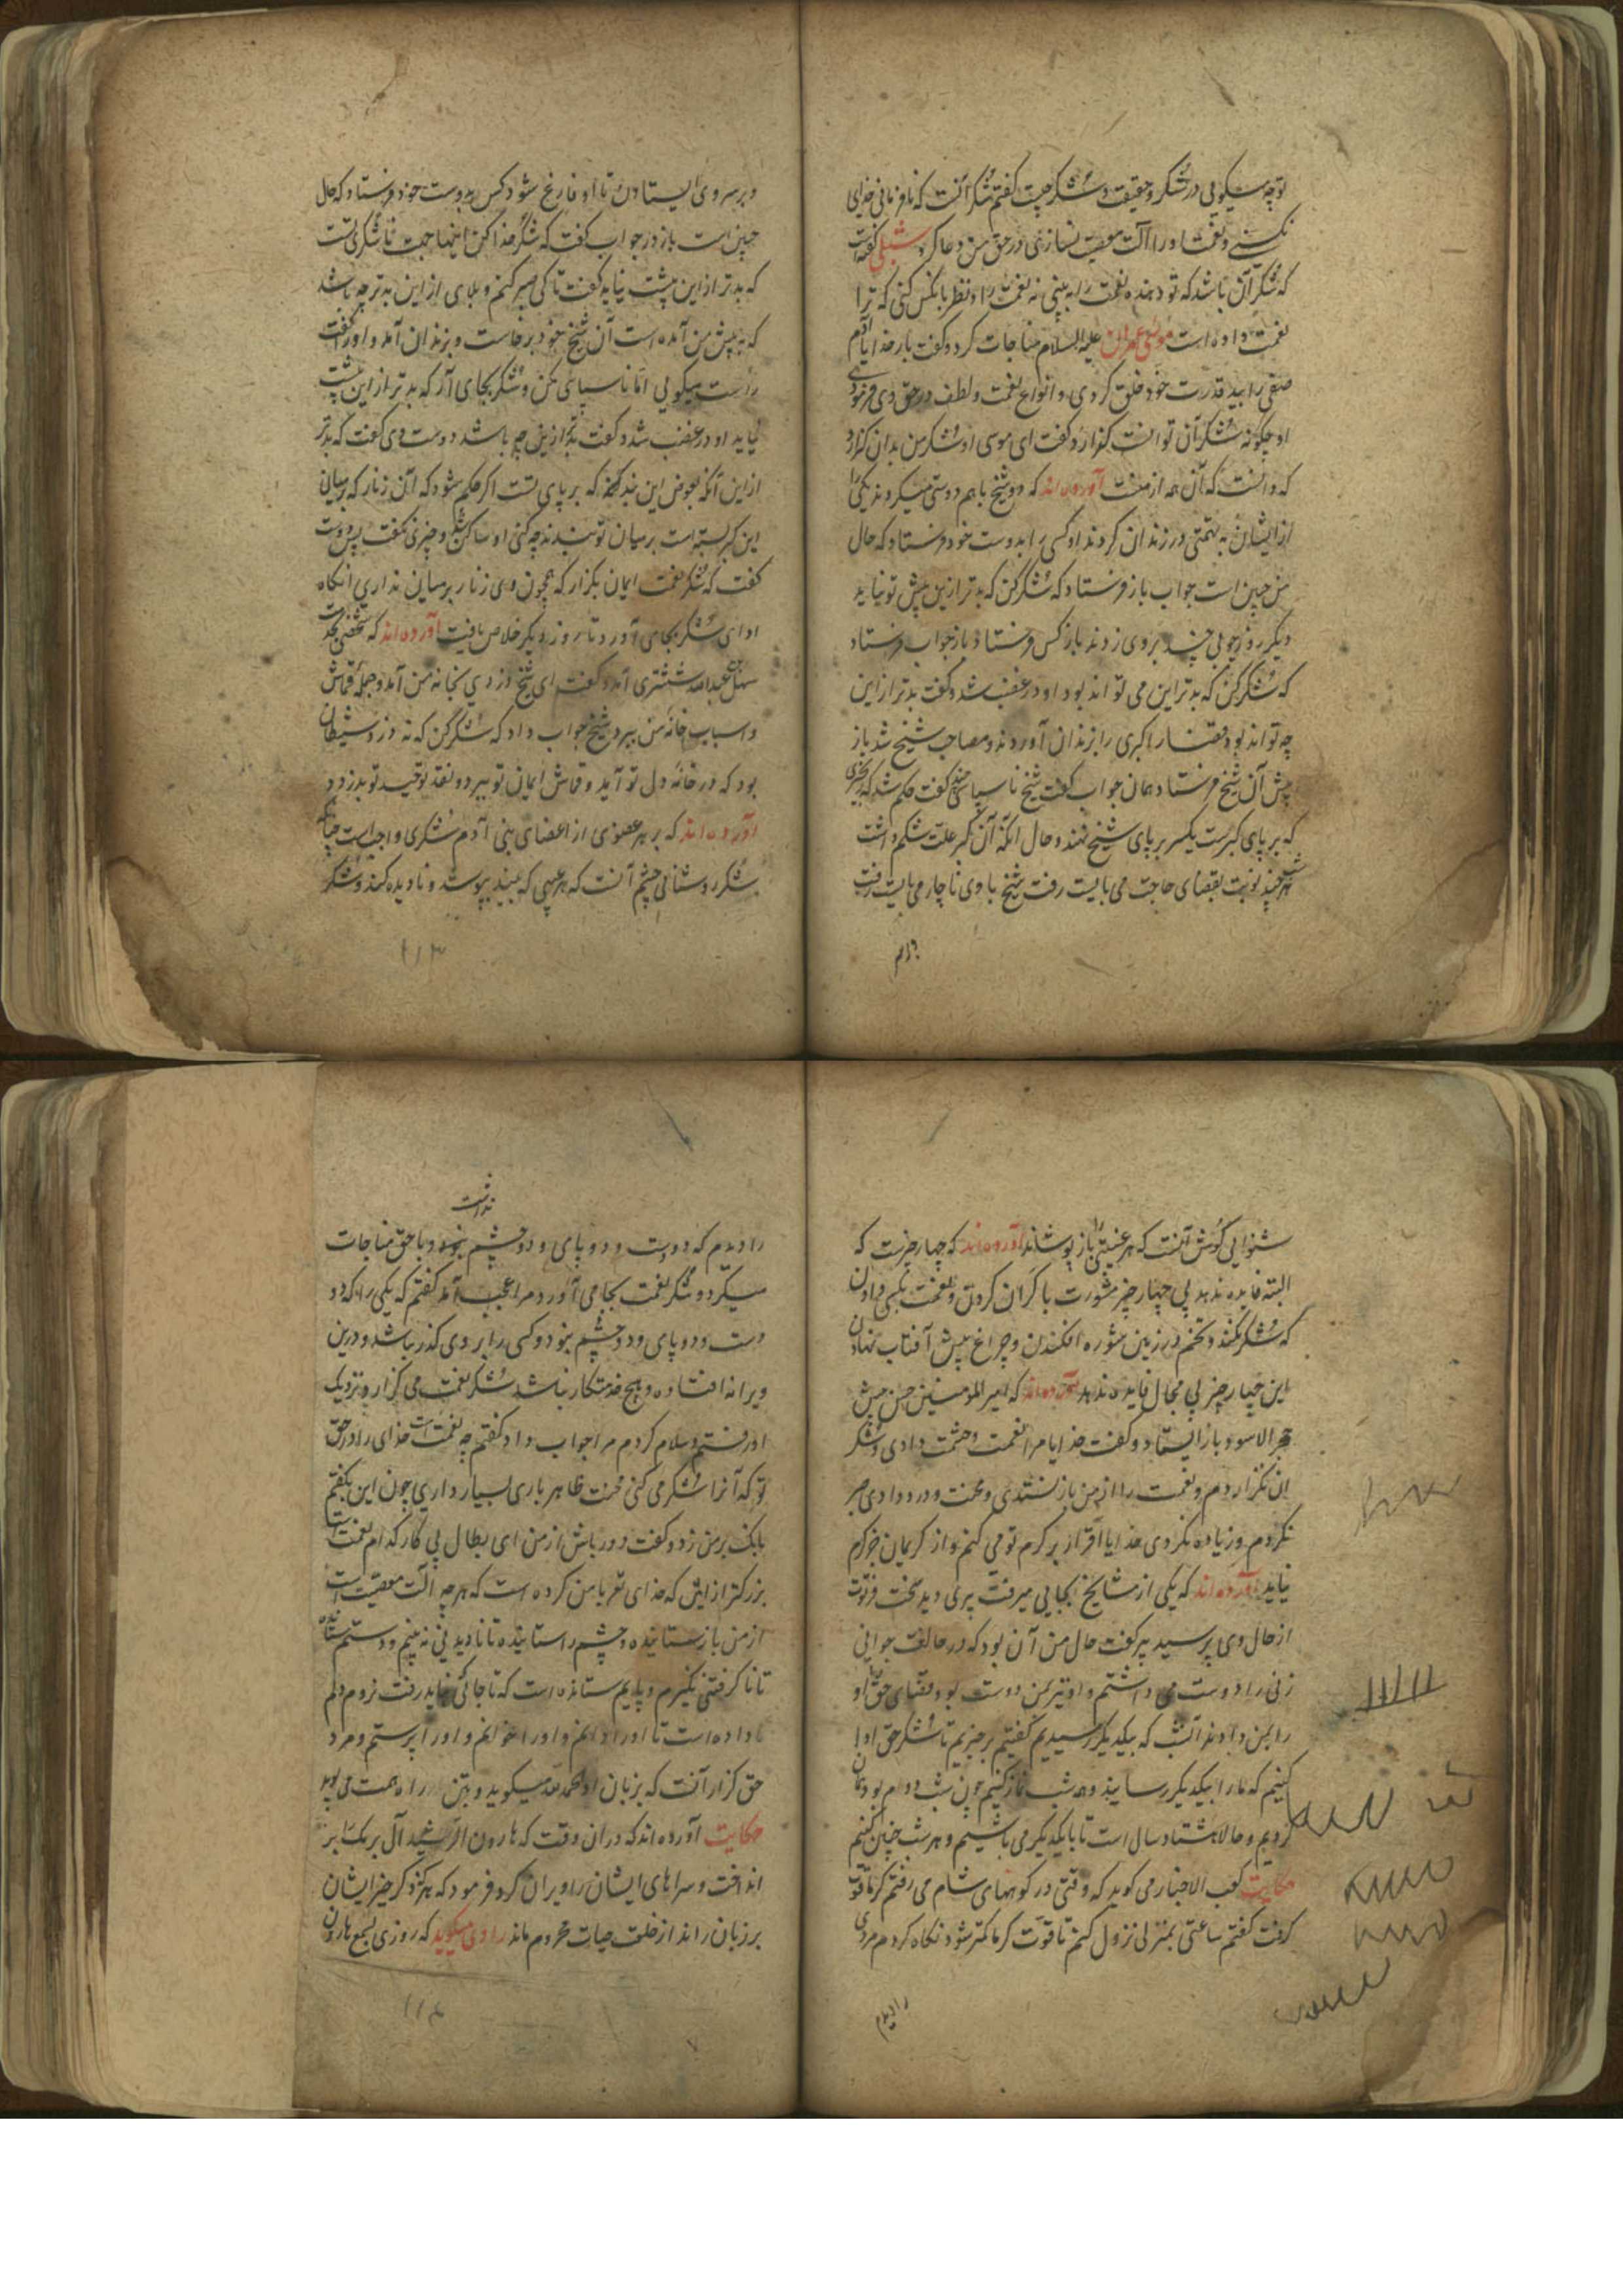 تو چه میکویی در شکر و حقیقت و شکر چیست کفتم شکر آنست که نافرمانی خدای
نکنی و نعمت او را آلت معصیت نسازی در حق من دعا کرد شبلی کفته است
که شکر آن باشد که تو دهنده نعمت را به بینی نه نعمت را و نظر بانکس کنی که ترا
نعمت داده است موسی عمران علیه السلام مناجات کرد و کفت بار خدایا آدم
صفی را بید قدرت خود خلق کردی و انواع نعمت و لطف در حق وی فرمودی
او چکونه شکر آن توانست کزارد کفت ای موسی او شکر من بدان کزارد
که دانست که آن همه از منست آورده اند که دو شیخ با هم دوستی میکردند یکی را
از ایشان به تهمتی در زندان کردند او کسی را بدوست خود فرستاد که حال
من چنین است جواب باز فرستاد که شکر کن که بدتر ازین پیش تو نیاید
دیکر روز چوبی چند بر وی زدند باز کس فرستاد باز جواب فرستاد
که شکر کن که بدتر این می تواند بود او در غضب شد و کفت بدتر از این
چه تواند بود قضا را کبری را بزندان آوردند و مصاحب شیخ شد باز
پیش آن شیخ فرستاد همان جواب کفت شیخ ناسپاسی چند کفت حکم شد که زنجیری
که بر پای کبرست یکسر بر پای شیخ نهند و حال آنکه آن کبر علت شکم داشت
هر شب چند نوبت بقضای حاجت می بایست رفت شیخ با وی ناچار می بایست رفت
و بر سر وی ایستادن تا او فارغ شود کس بدوست خود فرستاد که حال
چنین است باز در جواب کفت که شکر خدا کن اینها جهت ناشکری تست
که بدتر از این پیشت نیاید کفت تا کی صبر کنم و بلای از این بدتر چه باشد
که به پیش من آمده است آن شیخ خود برخاست و بزندان آمد و او را کفت
راست میکویی اما ناسپاسی مکن و شکر بجای آر که بدتر از این پیشت
نیاید او در غضب شد و کفت بتر ازین چه باشد دوست وی کفت که بدتر
از این آنکه بعوض این بند که بر پای تست اکر حکم شود که آن زنار که بر میان
این کبر بسته است بر میان تو بندند چه کنی او ساکن شد و چیزی نکفت پس دوست
کفت که شکر نعمت ایمان بکزار که همچون وی زنار بر میان نداری آنکاه
ادای شکر بجای آورد تا روز دیکر خلاص یافت آورده اند که شخصی بخدمت
سهل بن عبدالله تستری آمد و کفت ای شیخ دزدی بخانه من آمد و جمله قماش
و اسباب خانه من ببرد شیخ جواب داد که شکر کن که نه دزد شیطان
بود که در خانه دل تو آید و قماش ایمان تو ببرد و نقد توحید تو بدزدد
آورده اند که بر هر عضوی از اعضای بنی آدم شکری واجبست چنانکه
شکر روشنایی چشم آنست که هر عیبی که بیند بپوشد و نادیده کند و شکر
۱۱۳
شنوایی کوش آنست که هر غیبتی را باز پوشاند آورده اند که چهار چیزست که
البته فایده ندهد بی چهار چیز مشورت با کران کردن و نعمت بکسی دادن
که شکر نکند و تخم در زمین شوره افکندن و چراغ پیش آفتاب نهادن
این چهار چیز بی مجال فایده ندهد آورده اند که امیر المومنین حسن پیش
حجر الاسود باز ایستاد و کفت خدایا مرا نعمت و حشمت دادی و شکر
آن نکزاردم و نعمت را از من باز نستدی و محنت و درد دادی صبر
نکردم و زیاده نکردی خدایا اقرار بر کرم تو می کنم و از کریمان جز کرم
نیاید آورده اند که یکی از مشایخ بجایی میرفت پیری دید سخت فرتوت
از حال وی پرسید پیر کفت حال من آن بود که در حالت جوانی
زنی را دوست می داشتم و او نیز بمن دوست بود قضای حق او
را بمن دادند آنشب که بیکدیکر رسیدیم کفتیم برخیزیم تا شکر حق ادا
کنیم که ما را بیکدیکر رسانید و همه شب نماز کنیم چون شب دوم بود همان
کردیم و حالا هشتاد سال است تا با یکدیکر می باشیم و هر شب چنین کنیم
حکایت کعب الاحبار می کوید که وقتی در کوههای شام می رفتم کرما قوت
کرفت کفتم ساعتی بمنزلی نزول کنم تا قوت کرما کمتر شود نکاه کردم مردی
را دیدم
نداشت
را دیدم که دو دست و دو پای و دو چشم و با حق مناجات
میکرد و شکر نعمت بجا می آورد مرا عجب آمد کفتم که یکی را که دو
دست و دو پای و دو چشم نبود و کسی را بر وی کذر نباشد و درین
ویرانه افتاده و هیچ خدمتکار نباشد شکر نعمت می کزارد نزدیک
او رفتم و سلام کردم مرا جواب داد کفتم چه نعمت است خدای را در حق
تو که آنرا شکر می کنی محنت ظاهر باری بسیار داری چون این بکفتم
بانک بر من زد و کفت دور باش از من ای بطال بی کار کدام نعمت است
بزرکتر از این که خدای تع با من کرده است که هر چه آلت معصیت است
از من باز ستانیده و چشم را ستانیده تا نادیدنی نه بینم و دستم ستانده
تا ناکرفتنی نکیرم و پایم ستانده است که تا جائی نباید رفت نروم و دلم
داده است تا او را دانم و او را خوانم و او را پرستم و مرد
حق کزار آنست که بزبان الحمد لله میکوید و بتن راه همت می پوید
حکایت آورده اند که در آن وقت که هارون الرشید آل برمک را بر
انداخت و سراهای ایشان را ویران کرد و فرمود که هر که ذکر خیر ایشان
بر زبان راند از خلعت حیات محروم ماند راوی میکوید که روزی بسمع هارون
۱۱۴